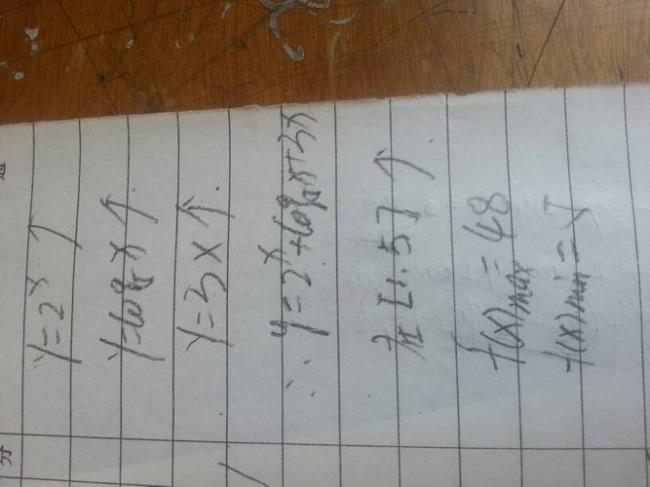 y=2ˣ ↑
y=log₅x ↑
y=3x ↑.
∴ y=2ˣ+log₅x+3x
在[1.5]↑.
f(x)max=48
f(x)min=5
分